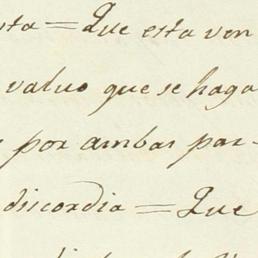 sta = Que esta ven
valuo que se haga
por ambas par-
discordia = Que